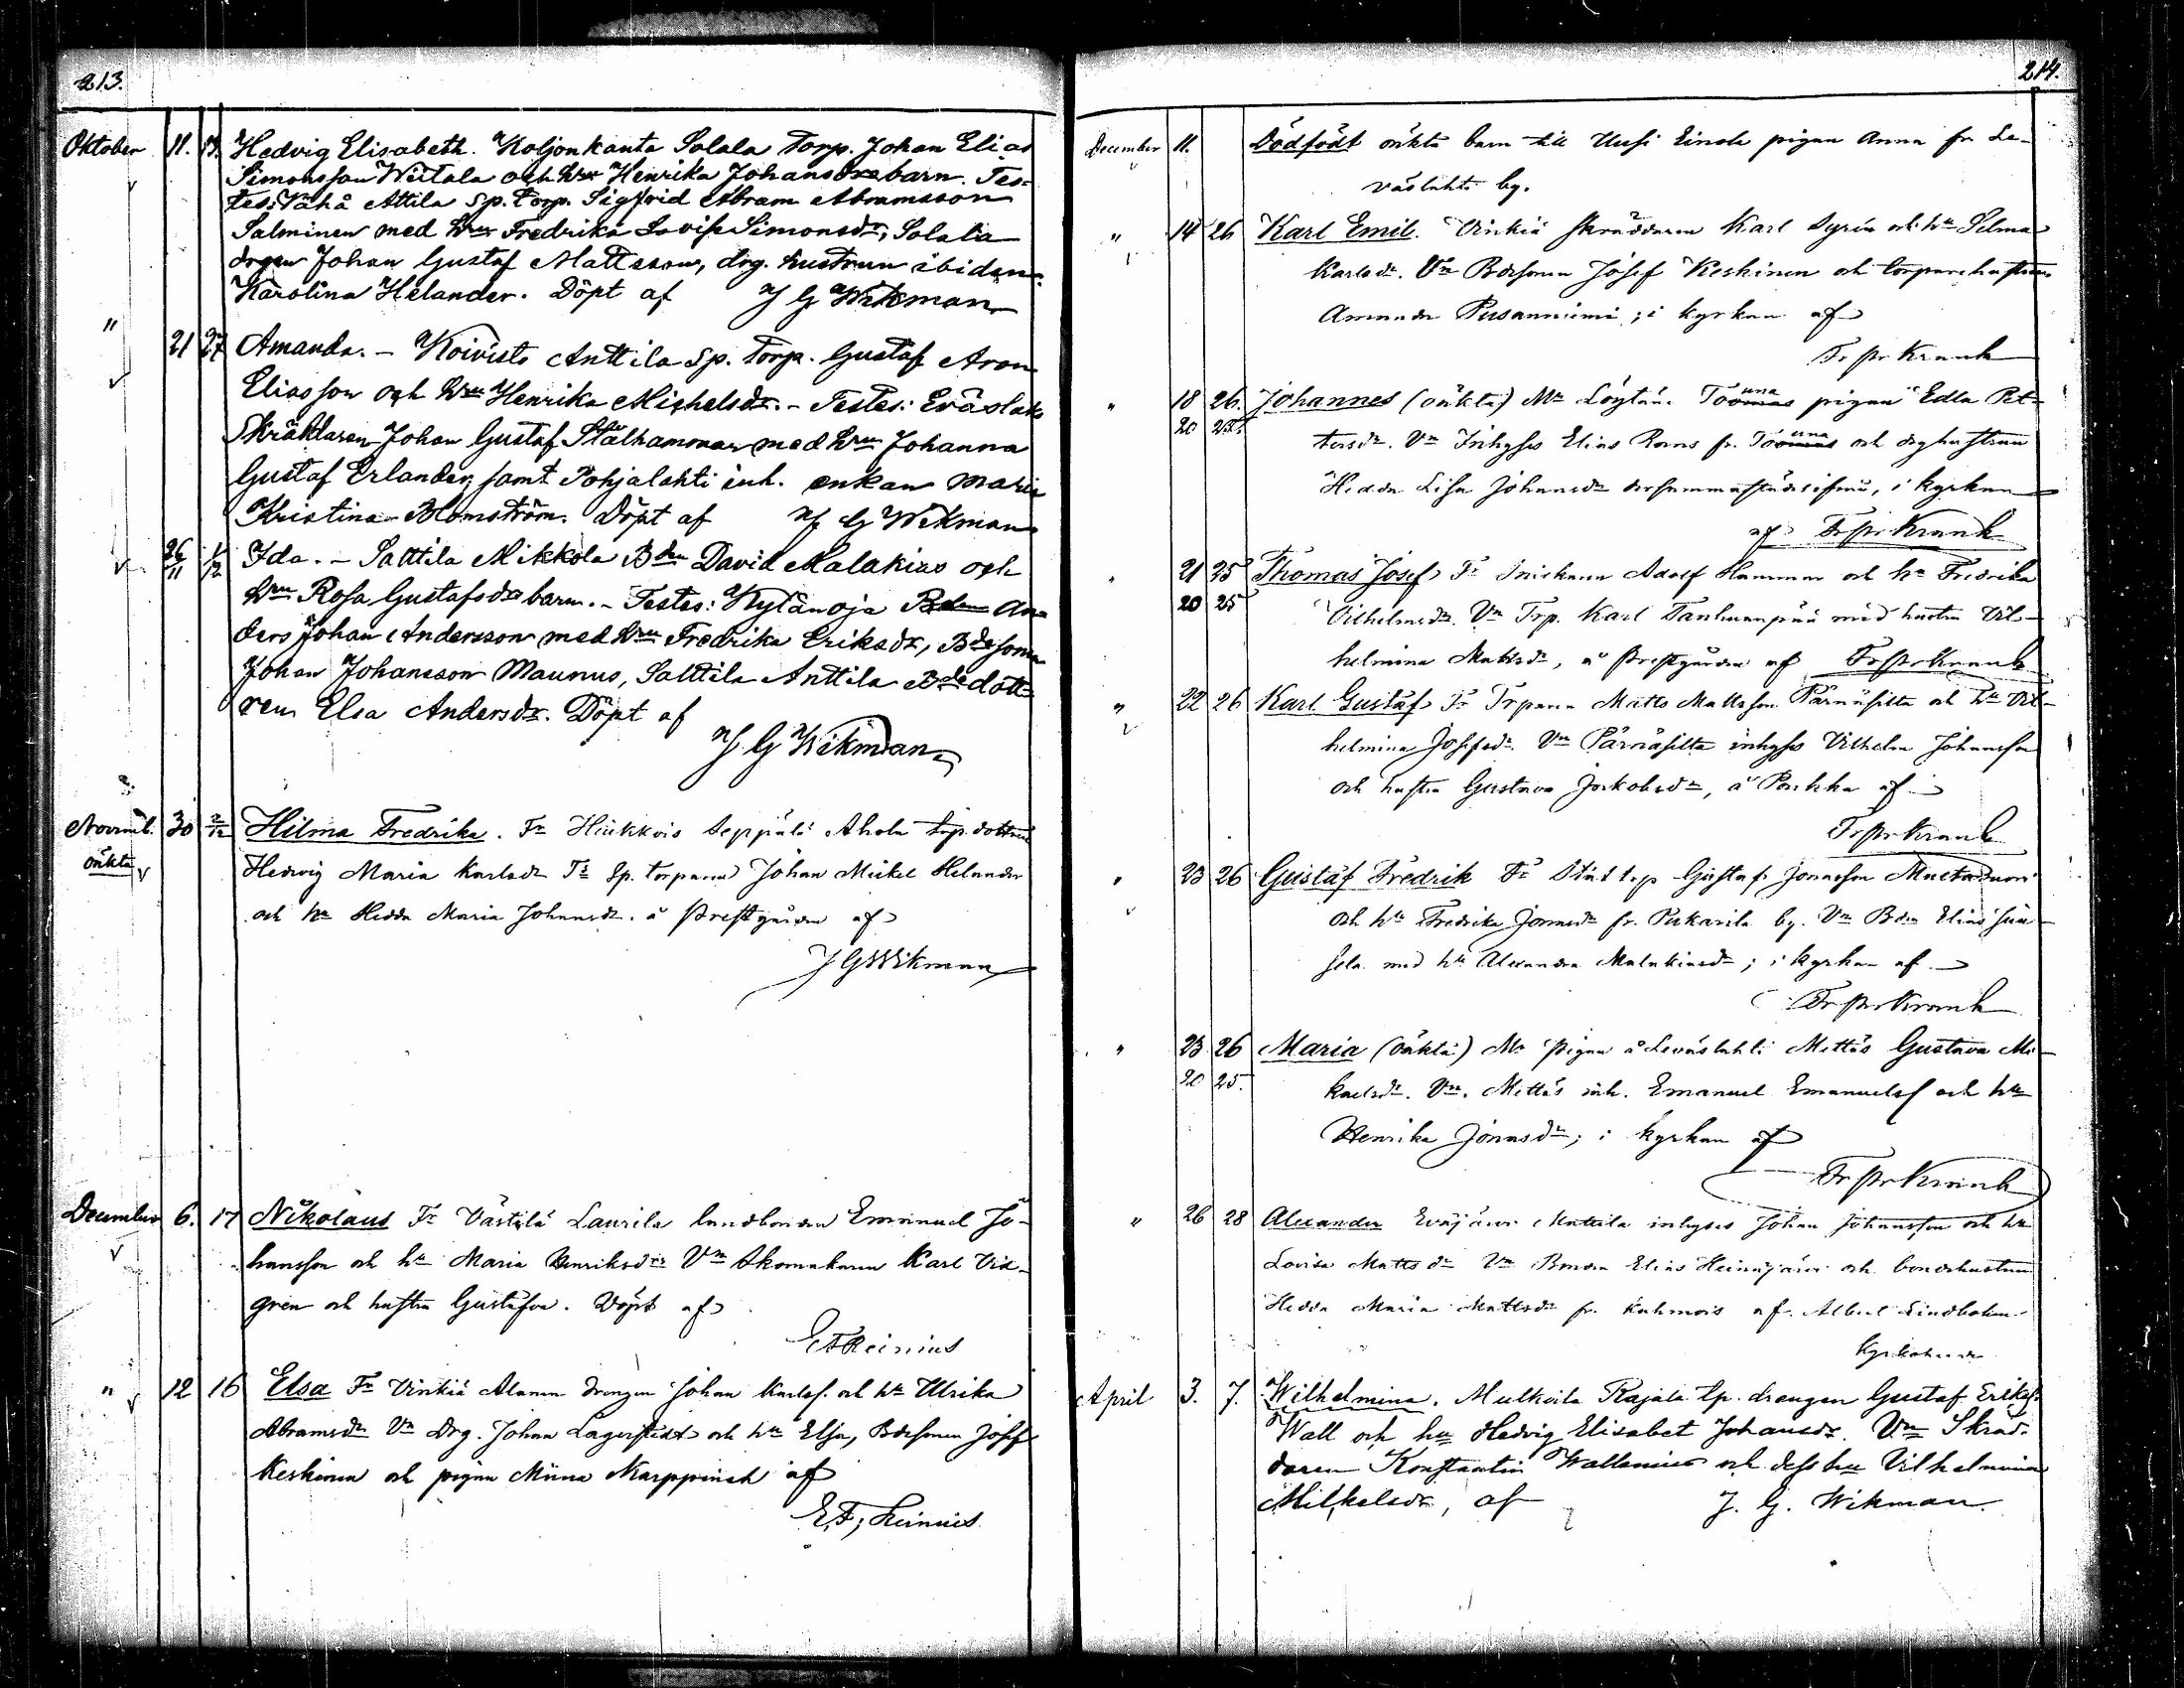 213.
Oktober 11. 13. Hedvig Elisabeth. Koljonkanta Solala Torp. Johan Elias
Simonsson Wiitala och hru Henrika Johansdrs barn. Tes-
tes: Vähä Attila Sp. Torp. Sigfrid Abram Abramsson
Salminen med hru Fredrika Lovisa Simonsdr, Solala
drgen Johan Gustaf Mattsson, drg. hustrun ibidem
Karolina Helander. Döpt af J G Wikman
" 21 27 Amanda. - Koivisto Anttila Sp. Torp. Gustaf Aron
Eliasson och hru Henrika Michelsdr. - Testes: Eväslaht
Skräddaren Johan Gustaf Stålhammar med hru Johanna
Gustaf Erlander, samt Pohjalahti inh. enkan Maria
Kristina Blomström. Döpt af J G Wikman
26/11 1/12 Ida. - Salttila Mikkola Bdn David Malakias och
hru Rosa Gustafsdrs barn. - Testes: Kylänoja Bden An-
ders Johan Andersson med hru Fredrika Eriksdr, Bdesonen
Johan Johansson Maunus, Salttila Anttila Bdedott-
ren Elsa Andersdr. Döpt af
J G Wikman
Novemb. 30 2/12 Hilma Fredrika. Fr Hinkkois Seppälä Ahola trp. dottren
oäkta Hedvig Maria Karlsdr Ts Sp. torparen Johan Mickel Helander
och hu Hedda Maria Johansdr. å Prestgården af
J G Wikman
December 6. 17 Nikolaus Fr Västilä Laurila landbonden Emanuel Jo-
hansson och hu Maria Henriksdr Vn Skomakaren Karl Vid-
gren och hustru Gustafva. Döpt af
E F Reinius
" 12 16 Elsa Fr Vinkiä Alanen drengen Johan Karlss. och hu Ulrika
Abramsdr Vn Drg. Johan Lagerstedt och hu Elsa, Bdesonen Josef
Keskinen och pigan Miina Karppinen af
E F Reinius
214.
December 11. Dödfödt oäkta barn till Uusi Einola pigan Anna fr Le-
väslahti by.
" 14 26 Karl Emil. Vinkiä Skräddaren Karl Syrén och hu Selma
Karlsdr. Vn Bdesonen Josef Keskinen och torparehustrun
Amanda Pusanniemi; i kyrkan af
Fr Pr Krank
" 18 26. Johannes (oäkta) Mr Löytän. Toouna pigan Edla Pet-
20 25. tersdr. Vn Inhyses Elias Roms fr. Toouna och drghustrun
Hedda Lisa Johansdr dersammastädes, i kyrkan
af Fr Pr Krank
" 21 25 Thomas Josef Fr Snickaren Adolf Hammar och hu Fredrika
20 25 Vilhelmsdr. Vn Trp. Karl Tanhuanpää med hustru Vil-
helmina Mattsdr, å Prestgården af Fr Pr Krank
" 22 26 Karl Gustaf Fr Trparen Matts Mattsson Pärnäsilta och hu Vil-
helmina Josefsdr. Vn Pärnäsilta inhyses Vilhelm Johansson
och hustru Gustava Jakobsdr, å af
Fr Pr Krank
" 23 26 Gustaf Fredrik Fr trp Gustaf Jonasson
och hu Fredrika Jonasdr fr. Pukarila by. Vn Bden Elias
med hu Alexandra Malakiasdr; i kyrkan af
Fr Pr Krank
" 23 26 Maria (oäkta) Mr pigan å Leväslahti Mettäs Gustava Mi-
20 25. kaelsdr. Vn. Mettäs inh. Emanuel Emanuelss och hu
Henrika Jonasdr; i kyrkan af
Fr Pr Krank
" 26 28 Alexander Eväjärvi Mattila inhyses Johan Johansson och hu
Lovisa Mattsdr Vn Bonden Elias Heinäjärvi och bondehustrun
Hedda Maria Mattsdr fr. Kuhmois af Albert Lindbohm
April 3. 7. Wilhelmina. Mulkoila Rajala Sp. drengen Gustaf Eriks.
Wall och hu Hedvig Elisabet Johansdr. Vn Skräd-
daren Konstantin Wallenius och dess hu Vilhelmina
Mikkelsdr, af J. G. Wikman.